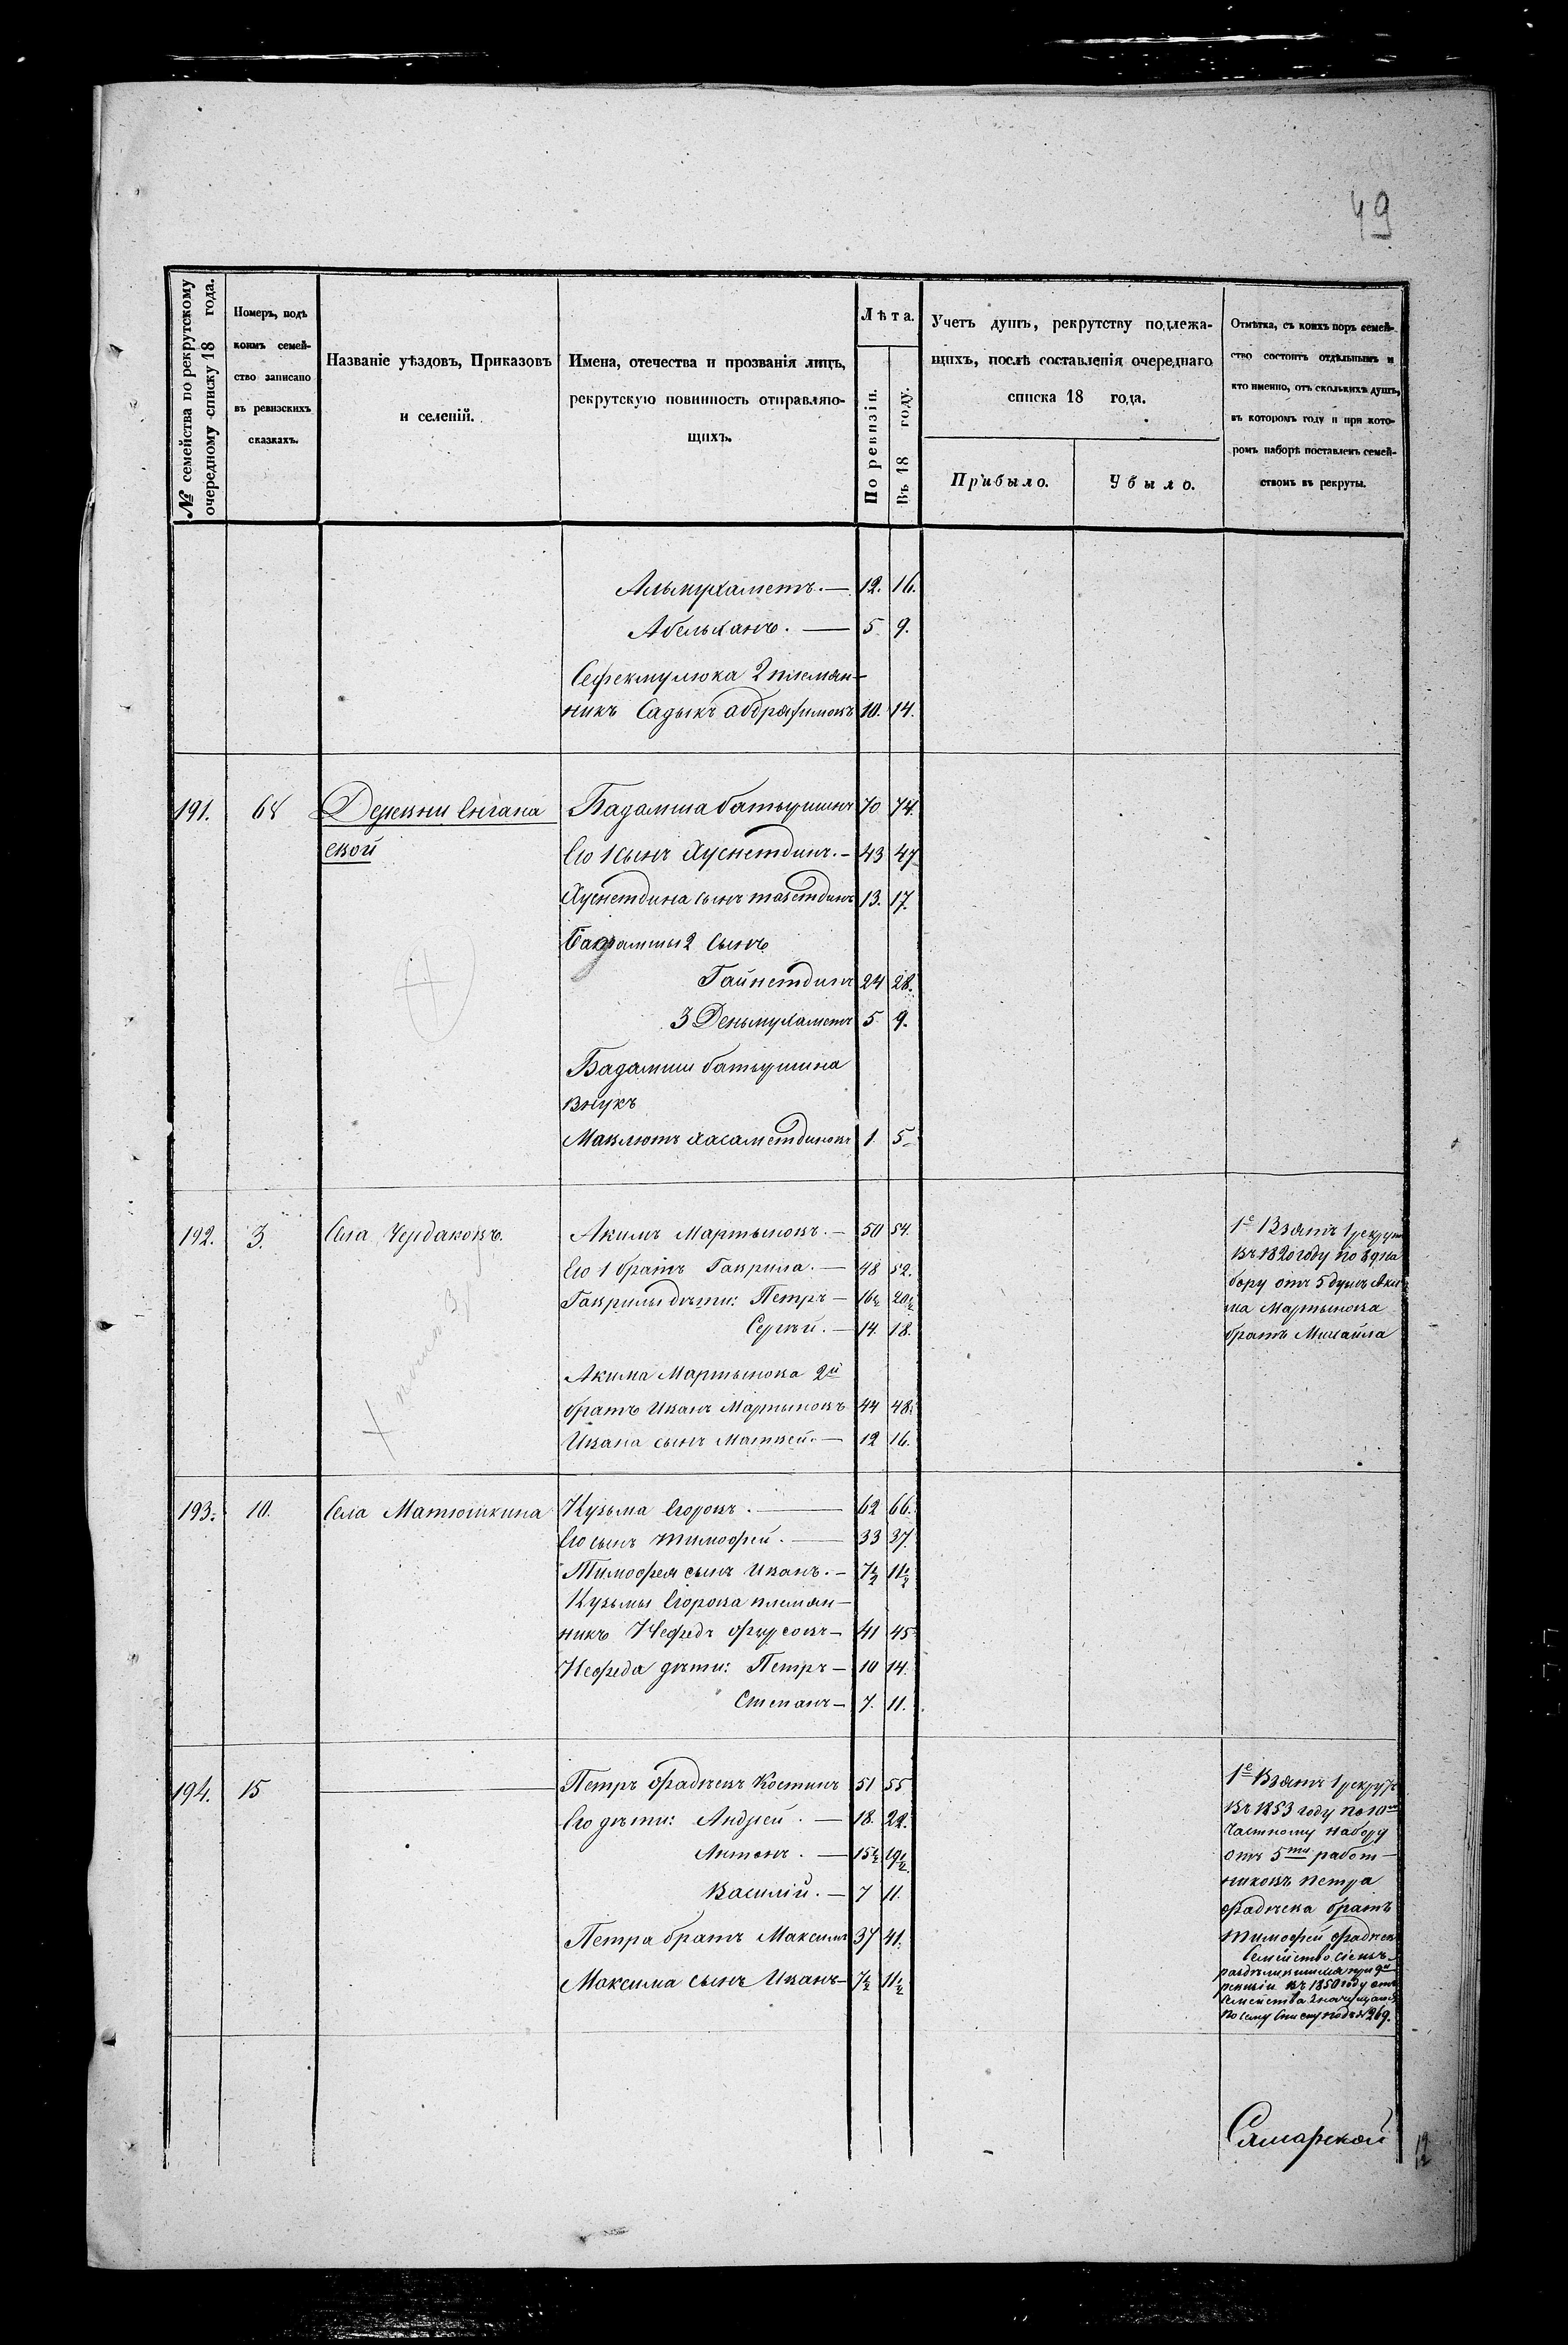 49
№ семейства по рекрутскому очередному списку 18 года.
Номеръ, подъ коимъ семейство записано въ ревизскихъ сказкахъ.
Названіе уѣздовъ, Приказовъ и селеній.
Имена, отечества и прозванія лицъ, рекрутскую повинность отправляющихъ.
Лѣта.
По ревизіи.
Въ 18 году.
Учетъ душъ, рекрутству подлежащихъ, послѣ составленія очереднаго списка 18 года.
Прибыло.
Убыло.
Отмѣтка, съ коихъ поръ семейство состоитъ отдѣльнымъ и кто именно, отъ сколькихъ душъ, въ которомъ году и при которомъ наборѣ поставленъ семействомъ въ рекруты.
Альмухаметъ. — 12. 16.
Абельханъ. — 5 9.
Сефекмулюка 2 племян-
никъ Садыкъ абдрафимовъ 10. 14.
191. 68 Деревни Енгана Бадамша батыршинъ 70 74.
ской Его 1 сынъ Хуснетдинъ. — 43 47
Хуснетдина сынъ 13. 17.
Бадамши 2 сынъ
Гайнетдинъ 24 28.
3 Деньмухаметъ 5 9.
Бадамши батыршина
внукъ
Маклютъ хасаметдиновъ 1 5
192. 3. Села Чердаковъ. Акимъ Мартыновъ. — 50 54.
Его 1 братъ Гаврила. — 48 52.
Гаврилы дѣти: Петръ — 16½ 20½
Сергѣй. — 14. 18.
Акима Мартынова 2й
братъ Иванъ Мартыновъ 44 48.
Ивана сынъ Матвей. — 12 16.
1е Взятъ 1 рекрутъ
въ 1820 году по 8д на
бору отъ 5 душъ Аки
ма Мартынова
братъ Михайла
193. 10. Села Матюшкина Кузьма Егоровъ. — 62 66.
Его сынъ Тимофей. — 33 37.
Тимофея сынъ Иванъ. — 7½ 11½
Кузьмы Егорова племян—
никъ Нефедъ фирсовъ — 41 45
Нефеда дѣти: Петръ — 10 14.
Степанъ — 7. 11.
194. 15 — Петръ фадѣевъ Костинъ 51 55
Его дѣти: Андрей. — 18. 22.
Антонъ. — 15½ 19½
Василій. — 7 11.
Петра братъ Максимъ 37 41.
Максима сынъ Иванъ — 7½ 11½
1е Взятъ 1 рекрутъ
въ 1853 году по 10му
частному набору
отъ 5ти работ—
никовъ петра
фадѣева братъ
тимофей фадѣевъ
Семейство сіе
раздѣлившимся при 9й
ревизіи въ 1850 году отъ
семейства
по сему списку подъ № 269.
Самарской